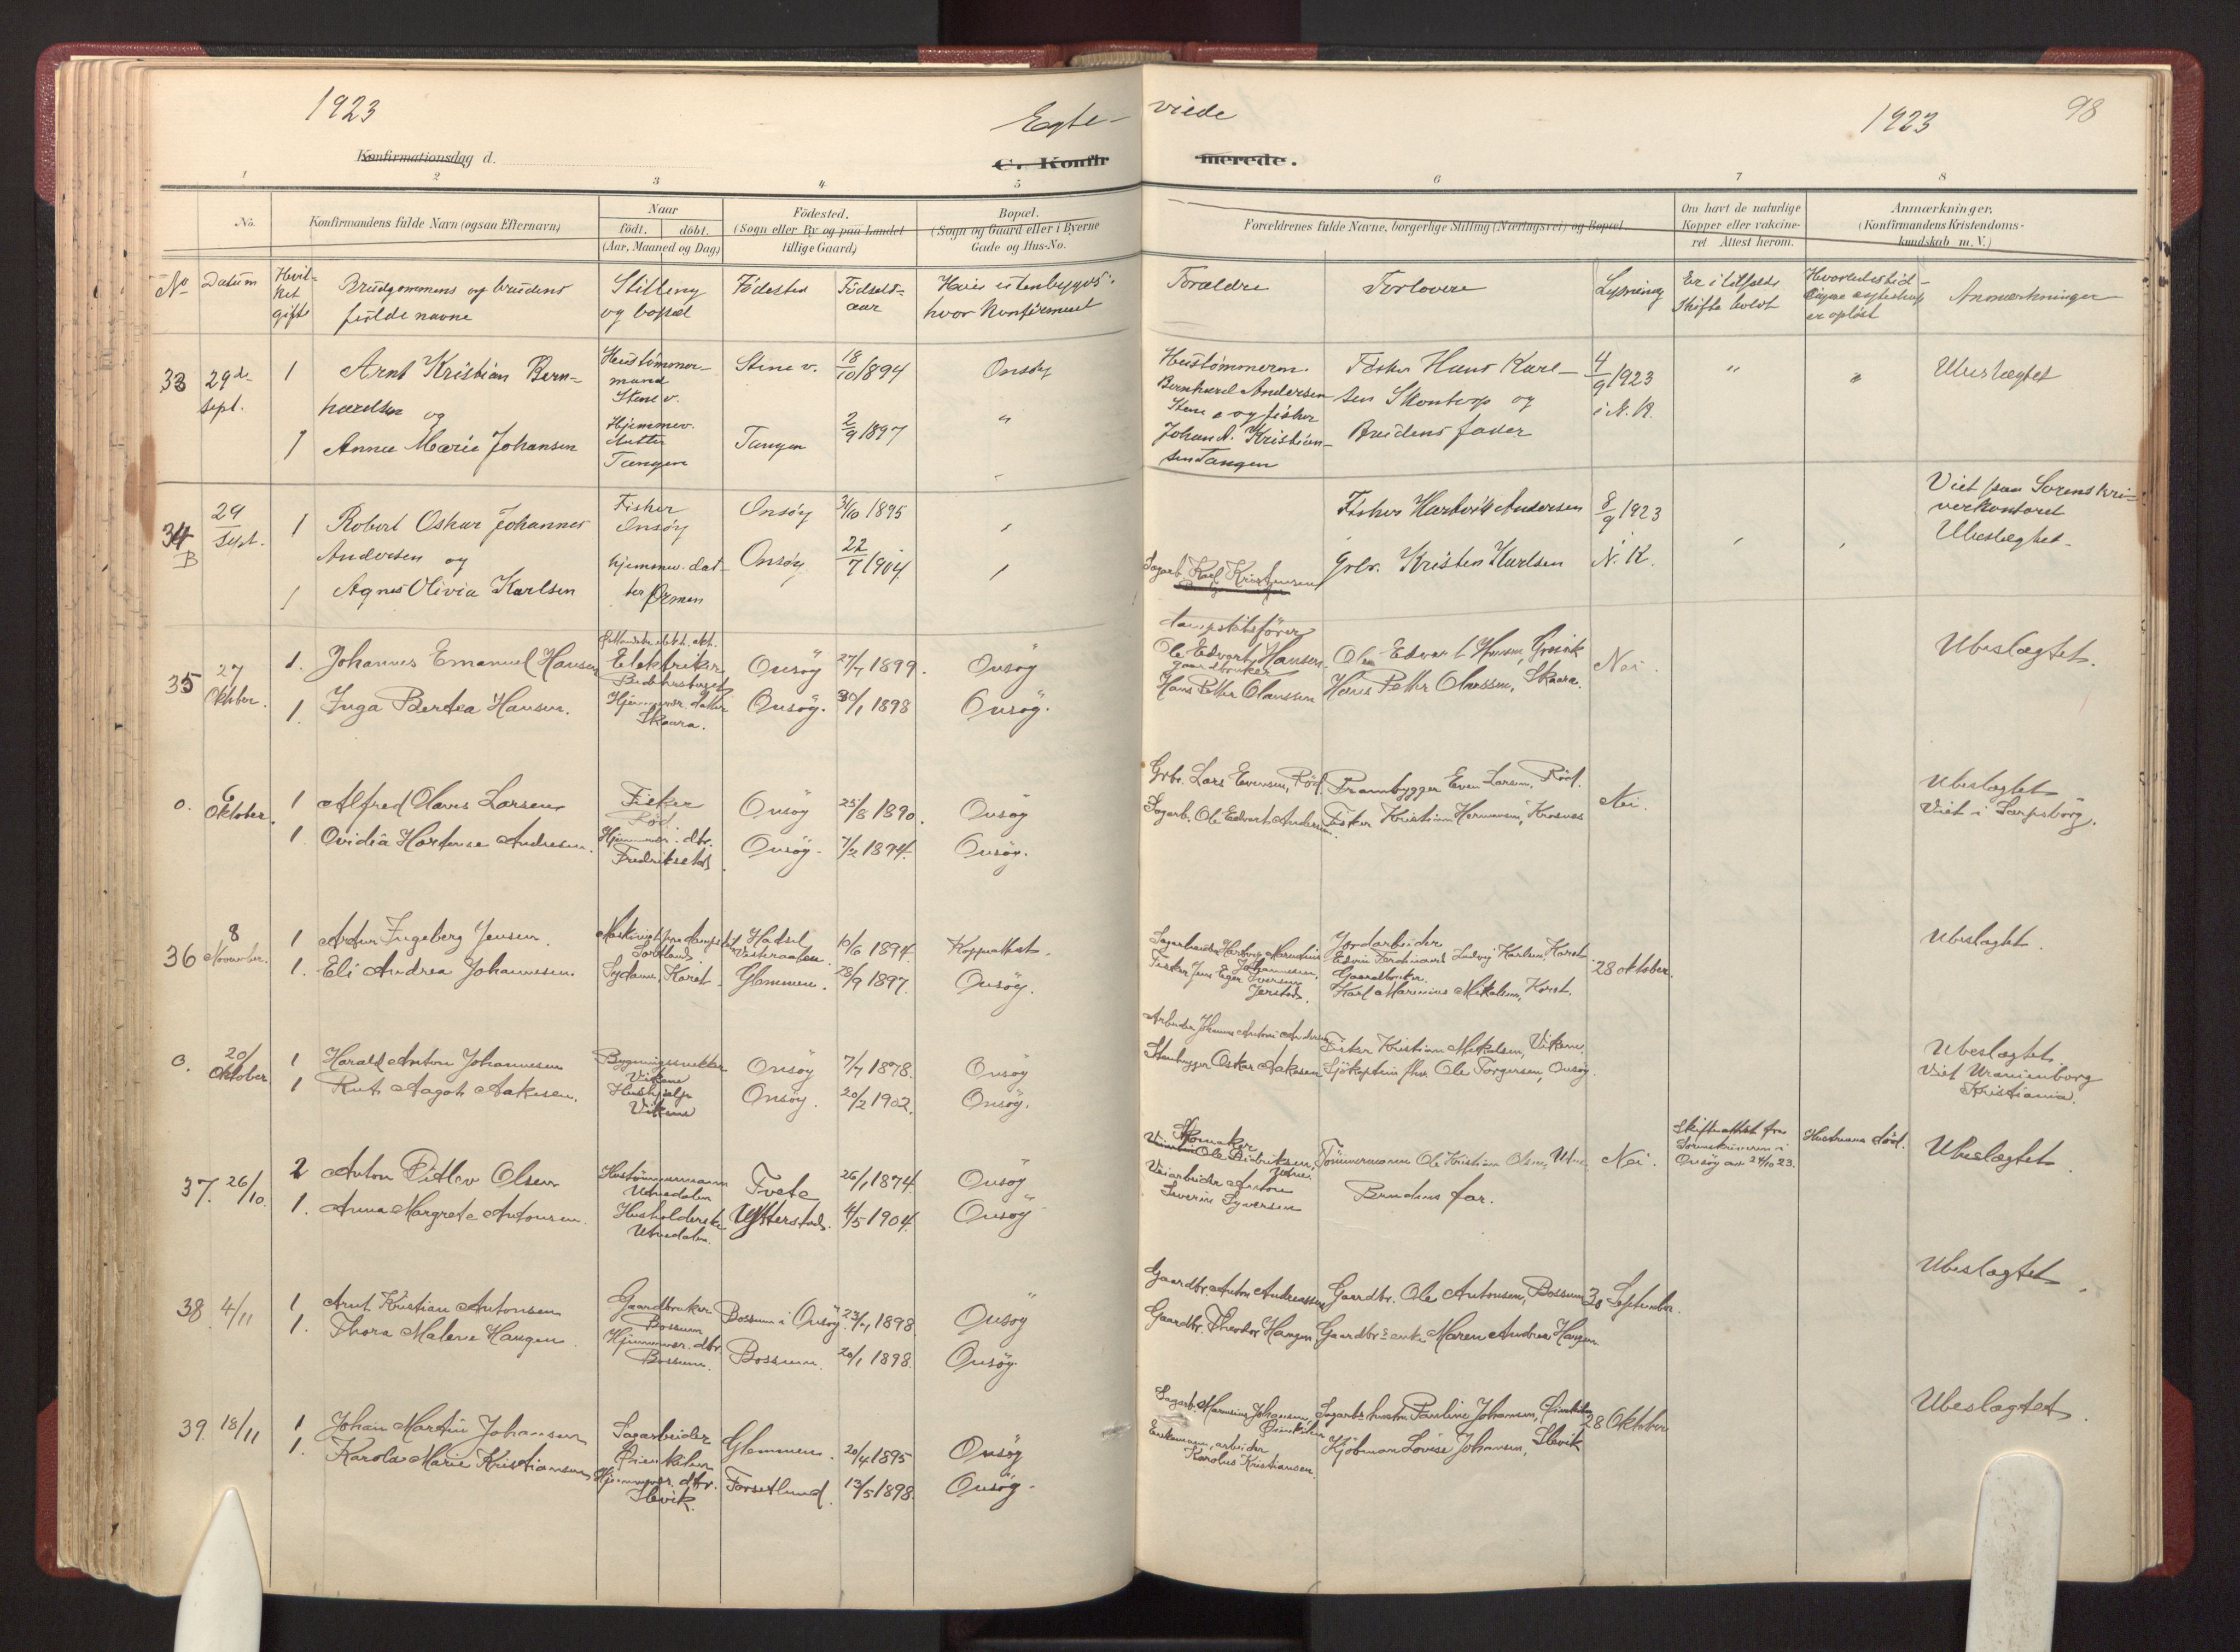 1923
Egte-
viede
1923
98
Konfirmationsdag d.
C. Konfir
merede.
1
2
3
4
5
6
7
8
No.
Konfirmandens fulde Navn (ogsaa Efternavn)
Naar
födt.
döbt.
(Aar, Maaned og Dag)
Födested.
(Sogn eller By og paa Landet
tillige Gaard)
Bopæl.
(Sogn og Gaard eller i Byerne
Gade og Hus-No.
Forældrenes fulde Navne, borgerlige Stilling (Næringsvei) og Bopæl.
Om havt de naturlige
Kopper eller vakcine-
ret Attest herom.
Anmærkninger.
(Konfirmandens Kristendoms-
kundskab m. V.)
No
Datum
Hvil-
ket
gifte
Brudgommens og brudens
fulde navne
Stilling
og bopæl
Födested
Födsels-
aar
Hvis utenbygds:
hvor konfirmert
Forældre
Forlovere
Lysning
Er i tilfælde
Skifte holdt
Hvorledes tid-
ligere egteskap
er oplöst
Anmærkninger
33
29de
sept.
1
Arnt Kristian Bern-
hardsen og
1
Anna Marie Johansen
Hustömmer-
mand
Stene v.
Hjemmev.
datter
Tangen
Stene v.
18/10 1894
Onsöy
Tangen
2/9 1897
"
Hustömmerm.
Bernhard Andersen
Stene v og fisker
Johan A. Kristian-
sen Tangen
Fisker Hans Karl-
sen Skontorp og
Brudens fader
4/9 1923
i N. K.
"
"
Ubeslægtet
34
B
29
Sept.
1
Robert Oskar Johannes
Andersen og
1
Agnes Olivia Karlsen
Fisker
Onsöy
hjemmev. dat-
ter Ørmen
Onsöy
3/10 1895
Onsöy
22/7 1904
Sagarb. Karl Kristensen
Fisker Hartvik Andersen
Grbr. Kristen Karlsen
8/9 1923
i N. K.
Viet paa Sorenskri-
verkontoret
Ubeslægtet
35
27
Oktober.
1.
Johannes Emanuel Hansen
1.
Inga Bertea Hansen.
Elektriker
Hjemmevær. datter
Skaara.
Onsöy
27/7 1899.
Onsöy
Onsöy.
30/1 1898
Onsöy.
dampskibsförer
Ole Edvart Hansen.
gaardbruker
Hans Petter Olaussen
Ole Edvart Hansen, Gresvik
Hans Petter Olaussen, Skaara.
Nei.
Ubeslægtet.
0.
6
Oktober.
1
Alfred Olaves Larsen
1
Ovidia Hortense Andresen.
Fisker
Röd
Hjemmevær. dtr.
Fredrikstad.
Onsöy
25/8 1890.
Onsöy
Onsöy.
7/2 1894.
Onsöy.
Grbr. Lars Evensen, Röd.
Sagarb. Ole Edvart Andersen.
Prambygger Even Larsen, Röd.
Fisker Kristian Hermansen, Krosnes
Nei.
Ubeslægtet
Viet i Sarpsborg.
36
8
November.
1
Artur Ingeberg Jensen.
1.
Eli Andrea Johannesen.
Sortland
Sydame, Karet.
Hadsel
Vesteraalen.
10/6 1894.
Koppeattest.
Glemmen.
28/9 1897.
Onsöy.
Sagarbeider Hartvig Marentius
Johannesen.
Fisker Jens Eger Iversen
Jerstad.
Jordarbeider
Edvin Ferdinand Ludvig Karlsen, Karet
Gaardbruker
Karl Marenius Mikalsen, Karet.
28 oktober.
Ubeslægtet.
0.
20/
Oktober
1
Harald Anton Johannesen
1
Rut Aagot Aakesen.
Bygningssnekker
Vikene
Hushjelp
Vikene
Onsöy
7/7 1878.
Onsöy
Onsöy.
20/2 1902.
Onsöy.
Arbeider Johannes Anton Andersen
Stenhugger Oskar Aakesen
Fisker Kristian Mikalsen, Vikene.
Sjökaptein Ole Torgersen, Onsöy.
Ubeslægtet.
Viet Uranienborg
Kristiania.
37.
26/10.
2
Anton Ditlev Olsen
1.
Anna Margrete Antonsen.
Hustömmermann
Utnedalen
Husholderske
Utnedalen.
Tvete
26/1 1874.
Onsöy
Ytterstad.
4/5 1904.
Onsöy
Skomaker
Ole Didriksen,
Veiarbeider Anton
Severin Syversen
Tömmermann Ole Kristian Olsen, Utne
Brudens far.
Nei.
Skifteattest fra
Sorenskriveren i
Onsöy av 24/10 23.
Hustruens död.
Ubeslægtet.
38.
4/11
1
Arnt Kristian Antonsen
1.
Thora Malene Haugen.
Gaardbruker
Bossum
Hjemmevær. dtr.
Bossum.
Bossum i Onsöy.
23/7 1898.
Onsöy
Bossum.
20/1 1898.
Onsöy.
Gaardbr. Anton Andreassen
Gaardbr. Theodor Haugen,
Gaardbr. Ole Antonsen, Bossum
Gaardbr.s enke Maren Andrea Haugen.
30 September.
Ubeslægtet.
39.
18/11
1
Johan Martin Johansen
1.
Karola Marie Kristiansen
Sagarbeider
Öienkilen
Hjemmevær. dtr.
Slevik.
Glemmen.
20/4 1895
Onsöy
Forsetlund.
13/5 1898.
Onsöy.
Sagarb. Marensius Johansen,
Öienkilen
arbeider
Karolus Kristiansen.
Sagarb.s hustru Pauline Johansen, Öienkilen
Kjöbman Lovise Johansen, Slevik
28 Oktober
Ubeslægtet.